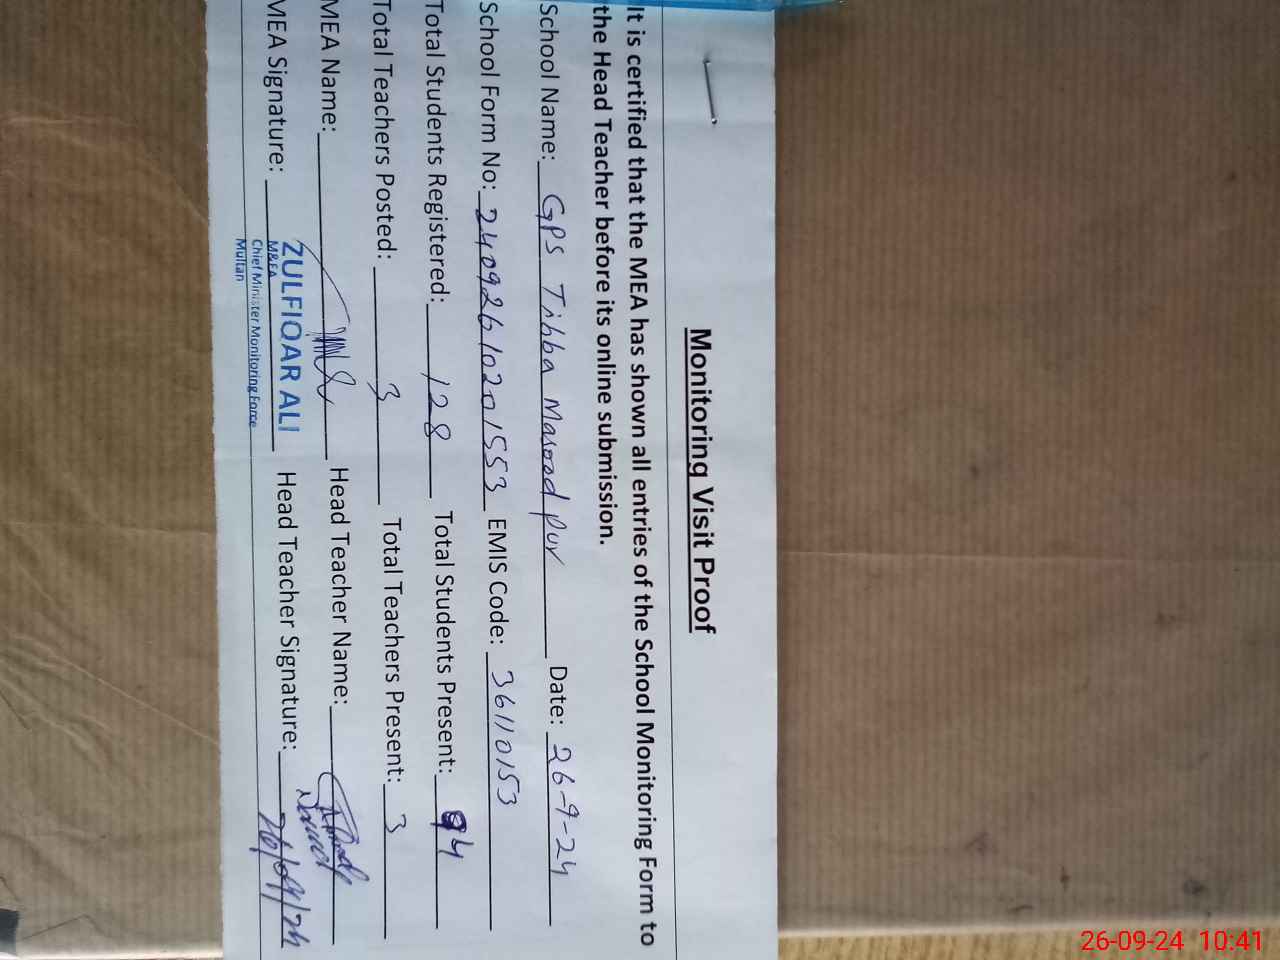 Monitoring Visit Proof
It is certified that the MEA has shown all entries of the School Monitoring Form to
the Head Teacher before its online submission.
School Name: GPS Tibba Masood pur Date: 26-9-24
School Form No: 24092610201553 EMIS Code: 36110153
Total Students Registered: 128 Total Students Present: 94
Total Teachers Posted: 3 Total Teachers Present: 3
MEA Name: Head Teacher Name:
MEA Signature: Head Teacher Signature:
ZULFIQAR ALI
M&EA
Chief Minister Monitoring Force
Multan
26/09/24
26-09-24 10:41